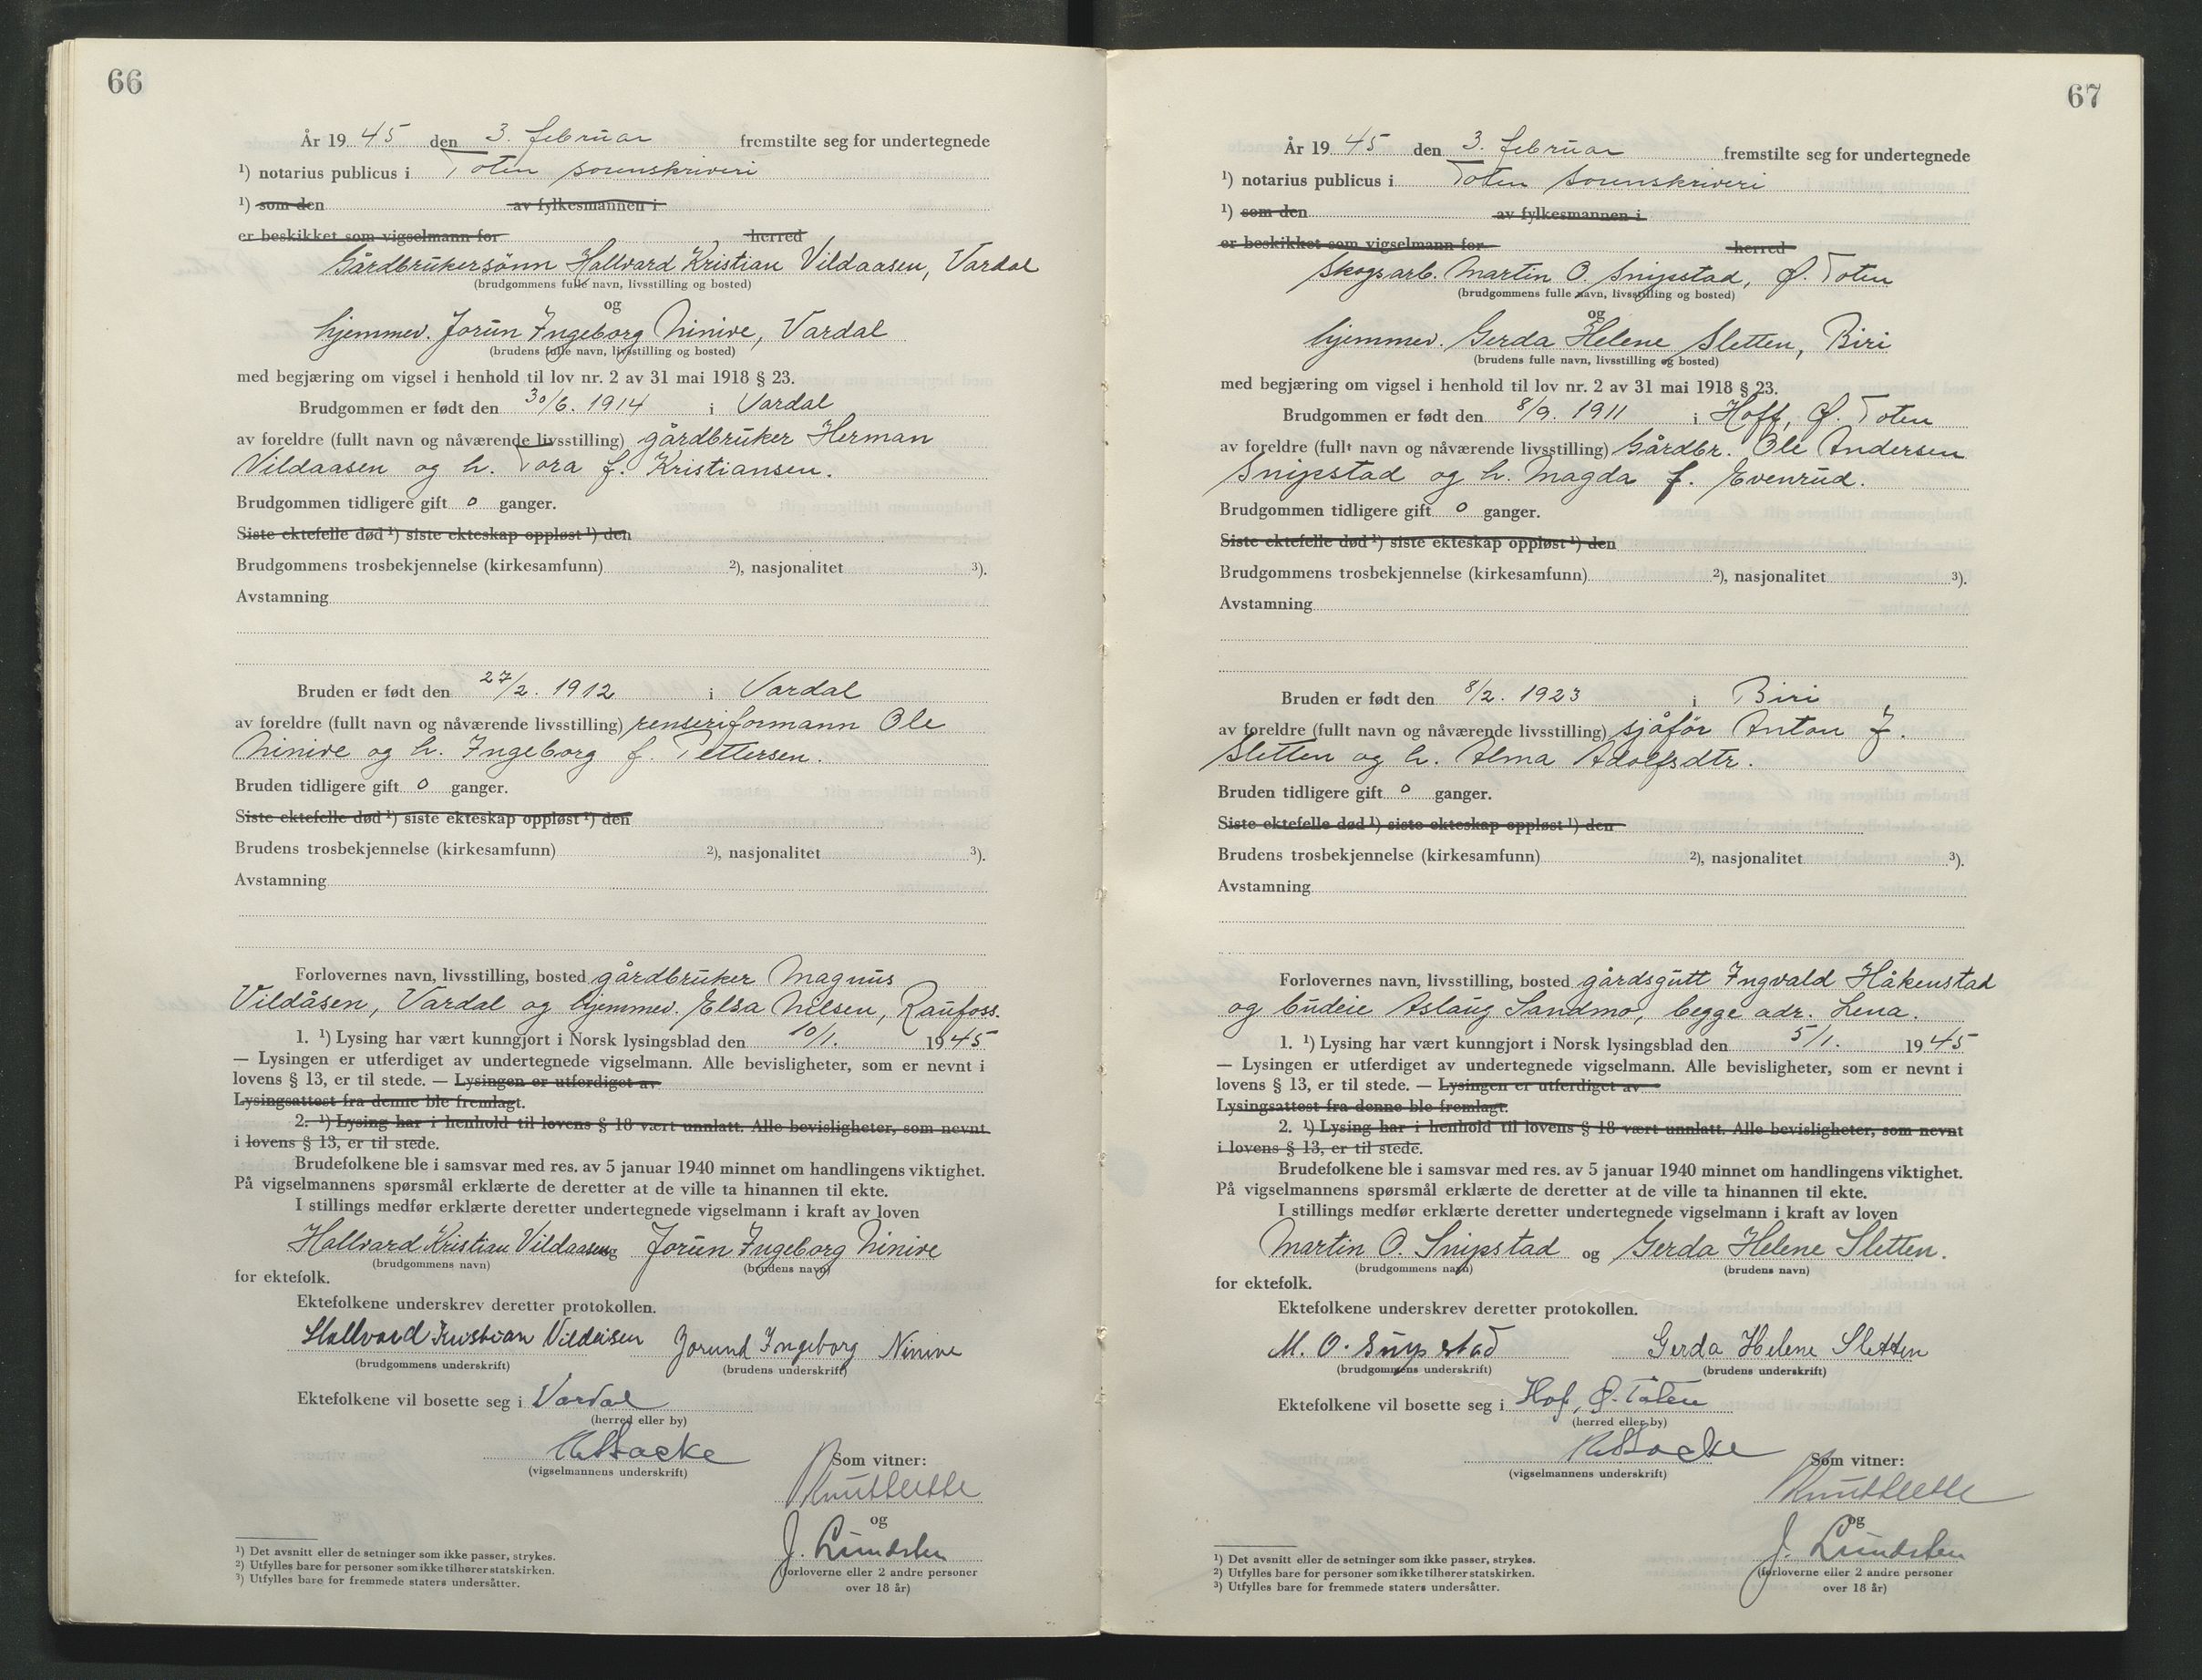 66
År 19 45 den 3. februar fremstilte seg for undertegnede
1) notarius publicus i Toten sorenskriveri
1) som den av fylkesmannen i
er beskikket som vigselmann for herred
Gårdbrukersønn Hallvard Kristian Vildaasen, Vardal
(brudgommens fulle navn, livsstilling og bosted)
og
hjemmev. Jorun Ingeborg Ninive, Vardal
(brudens fulle navn, livsstilling og bosted)
med begjæring om vigsel i henhold til lov nr. 2 av 31 mai 1918 § 23.
Brudgommen er født den 30/6. 1914 i Vardal
av foreldre (fullt navn og nåværende livsstilling) gårdbruker Herman
Vildaasen og h. Tora f. Kristiansen.
Brudgommen tidligere gift 0 ganger.
Siste ektefelle død 1) siste ekteskap oppløst 1) den
Brudgommens trosbekjennelse (kirkesamfunn) 2), nasjonalitet 3).
Avstamning
Bruden er født den 27/2. 1912 i Vardal
av foreldre (fullt navn og nåværende livsstilling) renseriformann Ole
Ninive og h. Ingeborg f. Pettersen.
Bruden tidligere gift 0 ganger.
Siste ektefelle død 1) siste ekteskap oppløst 1) den
Brudens trosbekjennelse (kirkesamfunn) 2), nasjonalitet 3).
Avstamning
Forlovernes navn, livsstilling, bosted gårdbruker Magnus
Vildåsen, Vardal og hjemmev. Elsa Nilsen, Raufoss.
1. 1) Lysing har vært kunngjort i Norsk lysingsblad den 10/1. 1945
— Lysingen er utferdiget av undertegnede vigselmann. Alle bevisligheter, som er nevnt i
lovens § 13, er til stede. — Lysingen er utferdiget av
Lysingsattest fra denne ble fremlagt.
2. 1) Lysing har i henhold til lovens § 18 vært unnlatt. Alle bevisligheter, som nevnt
i lovens § 13, er til stede.
Brudefolkene ble i samsvar med res. av 5 januar 1940 minnet om handlingens viktighet.
På vigselmannens spørsmål erklærte de deretter at de ville ta hinannen til ekte.
I stillings medfør erklærte deretter undertegnede vigselmann i kraft av loven
Hallvard Kristian Vildaasen og Jorun Ingeborg Ninive
(brudgommens navn) (brudens navn)
for ektefolk.
Ektefolkene underskrev deretter protokollen.
Hallvard Kristian Vildåsen Jorund Ingeborg Ninive
(brudgommens underskrift) (brudens underskrift)
Ektefolkene vil bosette seg i Vardal
(herred eller by)
(vigselmannens underskrift)
Som vitner:
og
J. Lundsten
(forloverne eller 2 andre personer
over 18 år)
1) Det avsnitt eller de setninger som ikke passer, strykes.
2) Utfylles bare for personer som ikke tilhører statskirken.
3) Utfylles bare for fremmede staters undersåtter.
67
År 19 45 den 3. februar fremstilte seg for undertegnede
1) notarius publicus i Toten sorenskriveri
1) som den av fylkesmannen i
er beskikket som vigselmann for herred
Skogsarb. Martin O. Snipstad, Ø. Toten
(brudgommens fulle navn, livsstilling og bosted)
og
hjemmev. Gerda Helene Sletten, Biri
(brudens fulle navn, livsstilling og bosted)
med begjæring om vigsel i henhold til lov nr. 2 av 31 mai 1918 § 23.
Brudgommen er født den 8/9. 1911 i Hoff, Ø. Toten
av foreldre (fullt navn og nåværende livsstilling) Gårdbr. Ole Andersen
Snipstad og h. Magda f. Evenrud.
Brudgommen tidligere gift 0 ganger.
Siste ektefelle død 1) siste ekteskap oppløst 1) den
Brudgommens trosbekjennelse (kirkesamfunn) 2), nasjonalitet 3).
Avstamning
Bruden er født den 8/2. 1923 i Biri
av foreldre (fullt navn og nåværende livsstilling) sjåfør Anton J.
Sletten og h. Alma Adolfsdtr.
Bruden tidligere gift 0 ganger.
Siste ektefelle død 1) siste ekteskap oppløst 1) den
Brudens trosbekjennelse (kirkesamfunn) 2), nasjonalitet 3).
Avstamning
Forlovernes navn, livsstilling, bosted gårdsgutt Ingvald Håkenstad
og budeie Aslaug Sandmo, begge adr. Lena.
1. 1) Lysing har vært kunngjort i Norsk lysingsblad den 5/1. 1945
— Lysingen er utferdiget av undertegnede vigselmann. Alle bevisligheter, som er nevnt i
lovens § 13, er til stede. — Lysingen er utferdiget av
Lysingsattest fra denne ble fremlagt.
2. 1) Lysing har i henhold til lovens § 18 vært unnlatt. Alle bevisligheter, som nevnt
i lovens § 13, er til stede.
Brudefolkene ble i samsvar med res. av 5 januar 1940 minnet om handlingens viktighet.
På vigselmannens spørsmål erklærte de deretter at de ville ta hinannen til ekte.
I stillings medfør erklærte deretter undertegnede vigselmann i kraft av loven
Martin O. Snipstad og Gerda Helene Sletten.
(brudgommens navn) (brudens navn)
for ektefolk.
Ektefolkene underskrev deretter protokollen.
M. O. Snipstad Gerda Helene Sletten
(brudgommens underskrift) (brudens underskrift)
Ektefolkene vil bosette seg i Hof, Ø. Toten
(herred eller by)
(vigselmannens underskrift)
Som vitner:
og
J. Lundsten
(forloverne eller 2 andre personer
over 18 år)
1) Det avsnitt eller de setninger som ikke passer, strykes.
2) Utfylles bare for personer som ikke tilhører statskirken.
3) Utfylles bare for fremmede staters undersåtter.